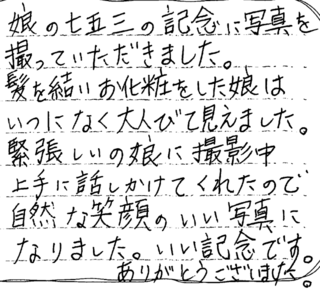 娘の七五三の記念に写真を
撮っていただきました。
髪を結いお化粧をした娘は
いつになく大人びて見えました。
緊張しいの娘に撮影中
上手に話しかけてくれたので
自然な笑顔のいい写真に
なりました。いい記念です。
ありがとうございました。